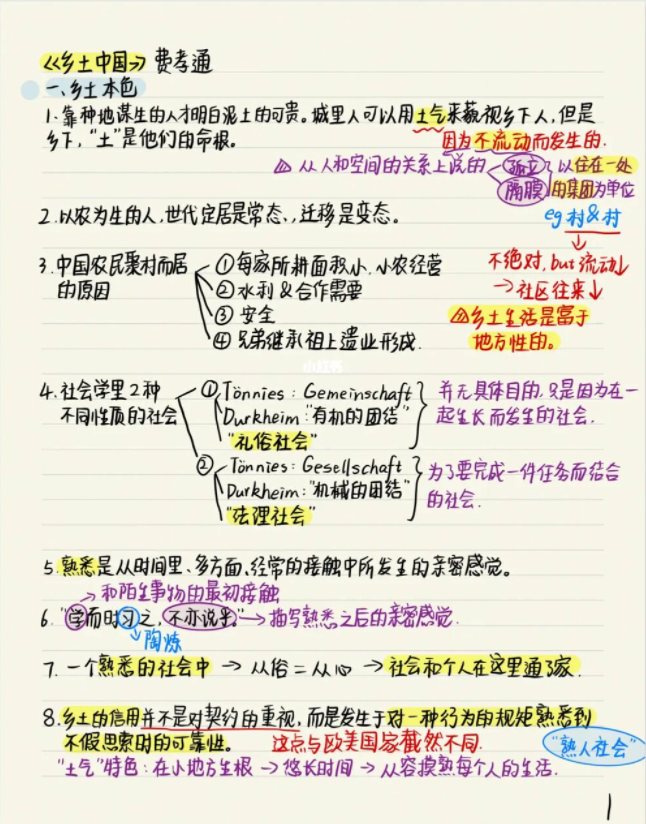 《乡土中国》 费孝通
一、乡土本色
1. 靠种地谋生的人才明白泥土的可贵。城里人可以用土气来藐视乡下人，但是
乡下，“土”是他们的命根。
因为不流动而发生的.
从人和空间的关系上说的
孤立
隔膜
以住在一处
的集团为单位
eg 村&村
不绝对, but 流动↓
→社区往来↓
乡土生活是富于
地方性的。
2. 以农为生的人，世代定居是常态、，迁移是变态。
3. 中国农民聚村而居
的原因
① 每家所耕面积小，小农经营
② 水利&合作需要
③ 安全
④ 兄弟继承祖上遗业形成.
小红书
4. 社会学里2种
不同性质的社会
① Tönnies: Gemeinschaft
Durkheim: "有机的团结"
"礼俗社会"
并无具体目的，只是因为在一
起生长而发生的社会.
② Tönnies: Gesellschaft
Durkheim: "机械的团结"
"法理社会"
为了要完成一件任务而结合
的社会.
5. 熟悉是从时间里、多方面、经常的接触中所发生的亲密感觉。
→和陌生事物的最初接触
6. "学而时习之，不亦说乎。"→描写熟悉之后的亲密感觉.
陶炼
7. 一个熟悉的社会中 → 从俗=从心 → 社会和个人在这里通了家.
8. 乡土的信用并不是对契约的重视，而是发生于对一种行为的规矩熟悉到
不假思索时的可靠性。 这点与欧美国家截然不同.
"熟人社会"
"土气"特色：在小地方生根 → 悠长时间 → 从容摸熟每个人的生活.
1